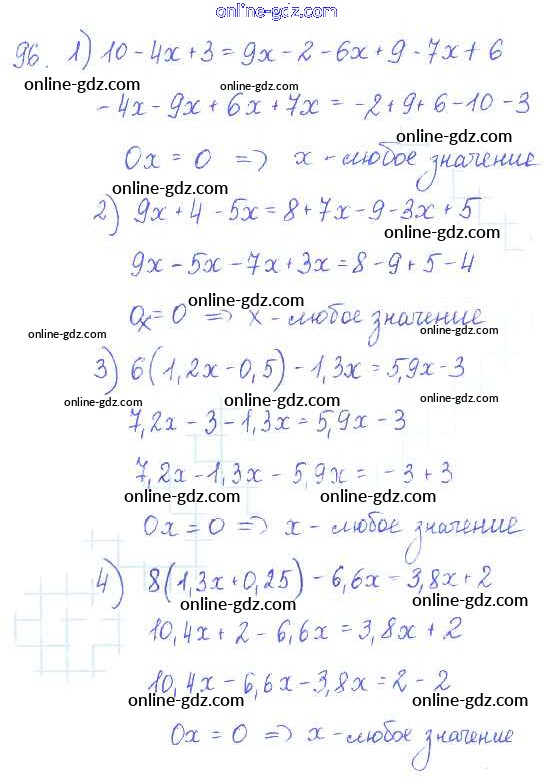 online-gdz.com
96. 1) 10 - 4x + 3 = 9x - 2 - 6x + 9 - 7x + 6
online-gdz.com online-gdz.com
-4x - 9x + 6x + 7x = -2 + 9 + 6 - 10 - 3
online-gdz.com
0x = 0 => x - любое значение
online-gdz.com online-gdz.com
2) 9x + 4 - 5x = 8 + 7x - 9 - 3x + 5
online-gdz.com
9x - 5x - 7x + 3x = 8 - 9 + 5 - 4
online-gdz.com
0x = 0 => x - любое значение
online-gdz.com online-gdz.com
3) 6(1,2x - 0,5) - 1,3x = 5,9x - 3
online-gdz.com online-gdz.com
7,2x - 3 - 1,3x = 5,9x - 3
7,2x - 1,3x - 5,9x = -3 + 3
online-gdz.com online-gdz.com
0x = 0 => x - любое значение
online-gdz.com
4) 8(1,3x + 0,25) - 6,6x = 3,8x + 2
online-gdz.com online-gdz.com
10,4x + 2 - 6,6x = 3,8x + 2
10,4x - 6,6x - 3,8x = 2 - 2
online-gdz.com online-gdz.com
0x = 0 => x - любое значение
online-gdz.com